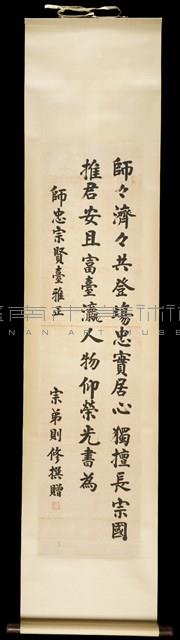 師々濟々共登場忠實居心獨擅長宗國
推君安且富臺瀛人物仰榮光書為
師忠宗賢臺雅正
宗弟則修撰贈